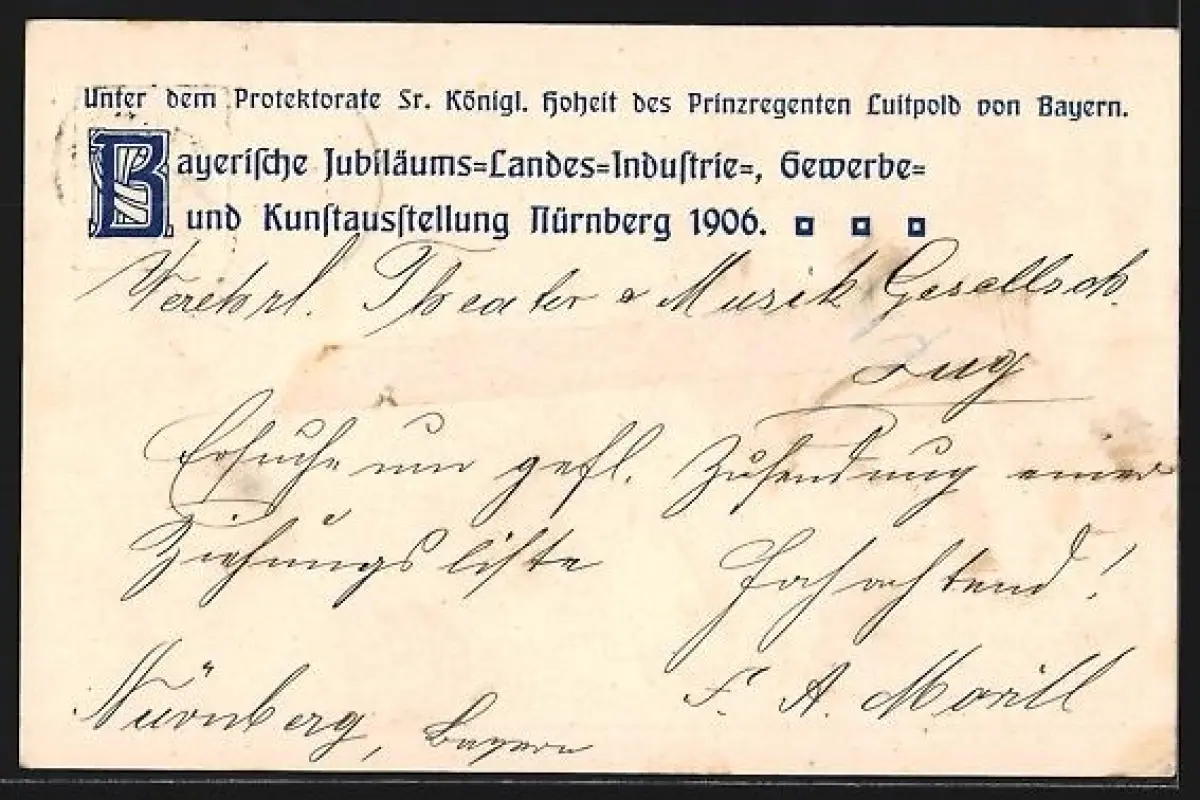 Unter dem Protektorate Sr. Königl. Hoheit des Prinzregenten Luitpold von Bayern.
Bayerische Jubiläums=Landes=Industrie=, Gewerbe=
und Kunstausstellung Nürnberg 1906.
Verehrl. Theater & Musik Gesellsch.
Zug
Ersuche um gefl. Zusendung einer
Ziehungsliste Hochachtend!
F. A.
Nürnberg, Bayern